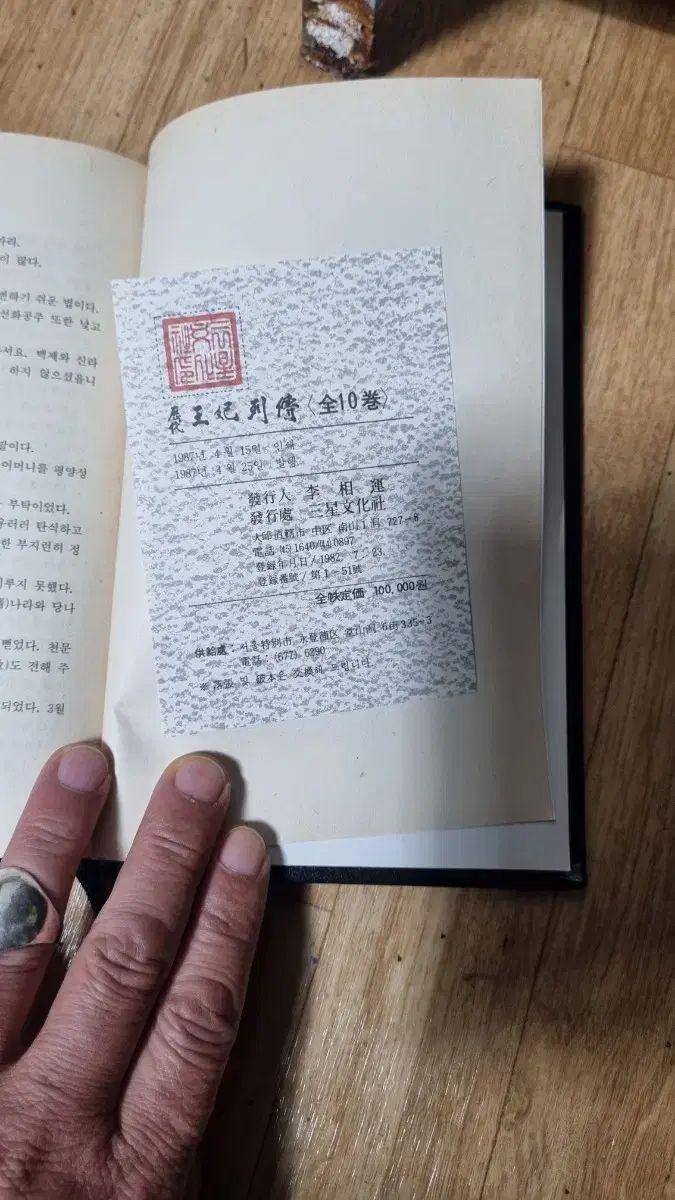 이 많다.
변하기 쉬운 법이다.
선화공주 또한 낮고
서요. 백제와 신라
하지 않으셨음니
말이다.
어머니를 평양성
부탁이었다.
우러러 탄식하고
한 부지런히 정
이루지 못했다.
나라와 당나
뻗었다. 천문
도 전해 주
되었다. 3월
歷代 王妃列傳〈全10巻〉
1987년 4월 15일 인쇄
1987년 4월 25일 발행
發行人 李相運
發行處 三星文化社
大邱直轄市 中区 南山1洞 727-8
電話 1640/ 0897
登録年月日/1982. 7. 23.
登録番號/第1-51號
全帙定価 100,000원
供給處: 서울特別市 永登浦区 堂山洞 6街 335-3
電話: (677) 6290
※ 落張 및 破本은 交換해 드립니다.